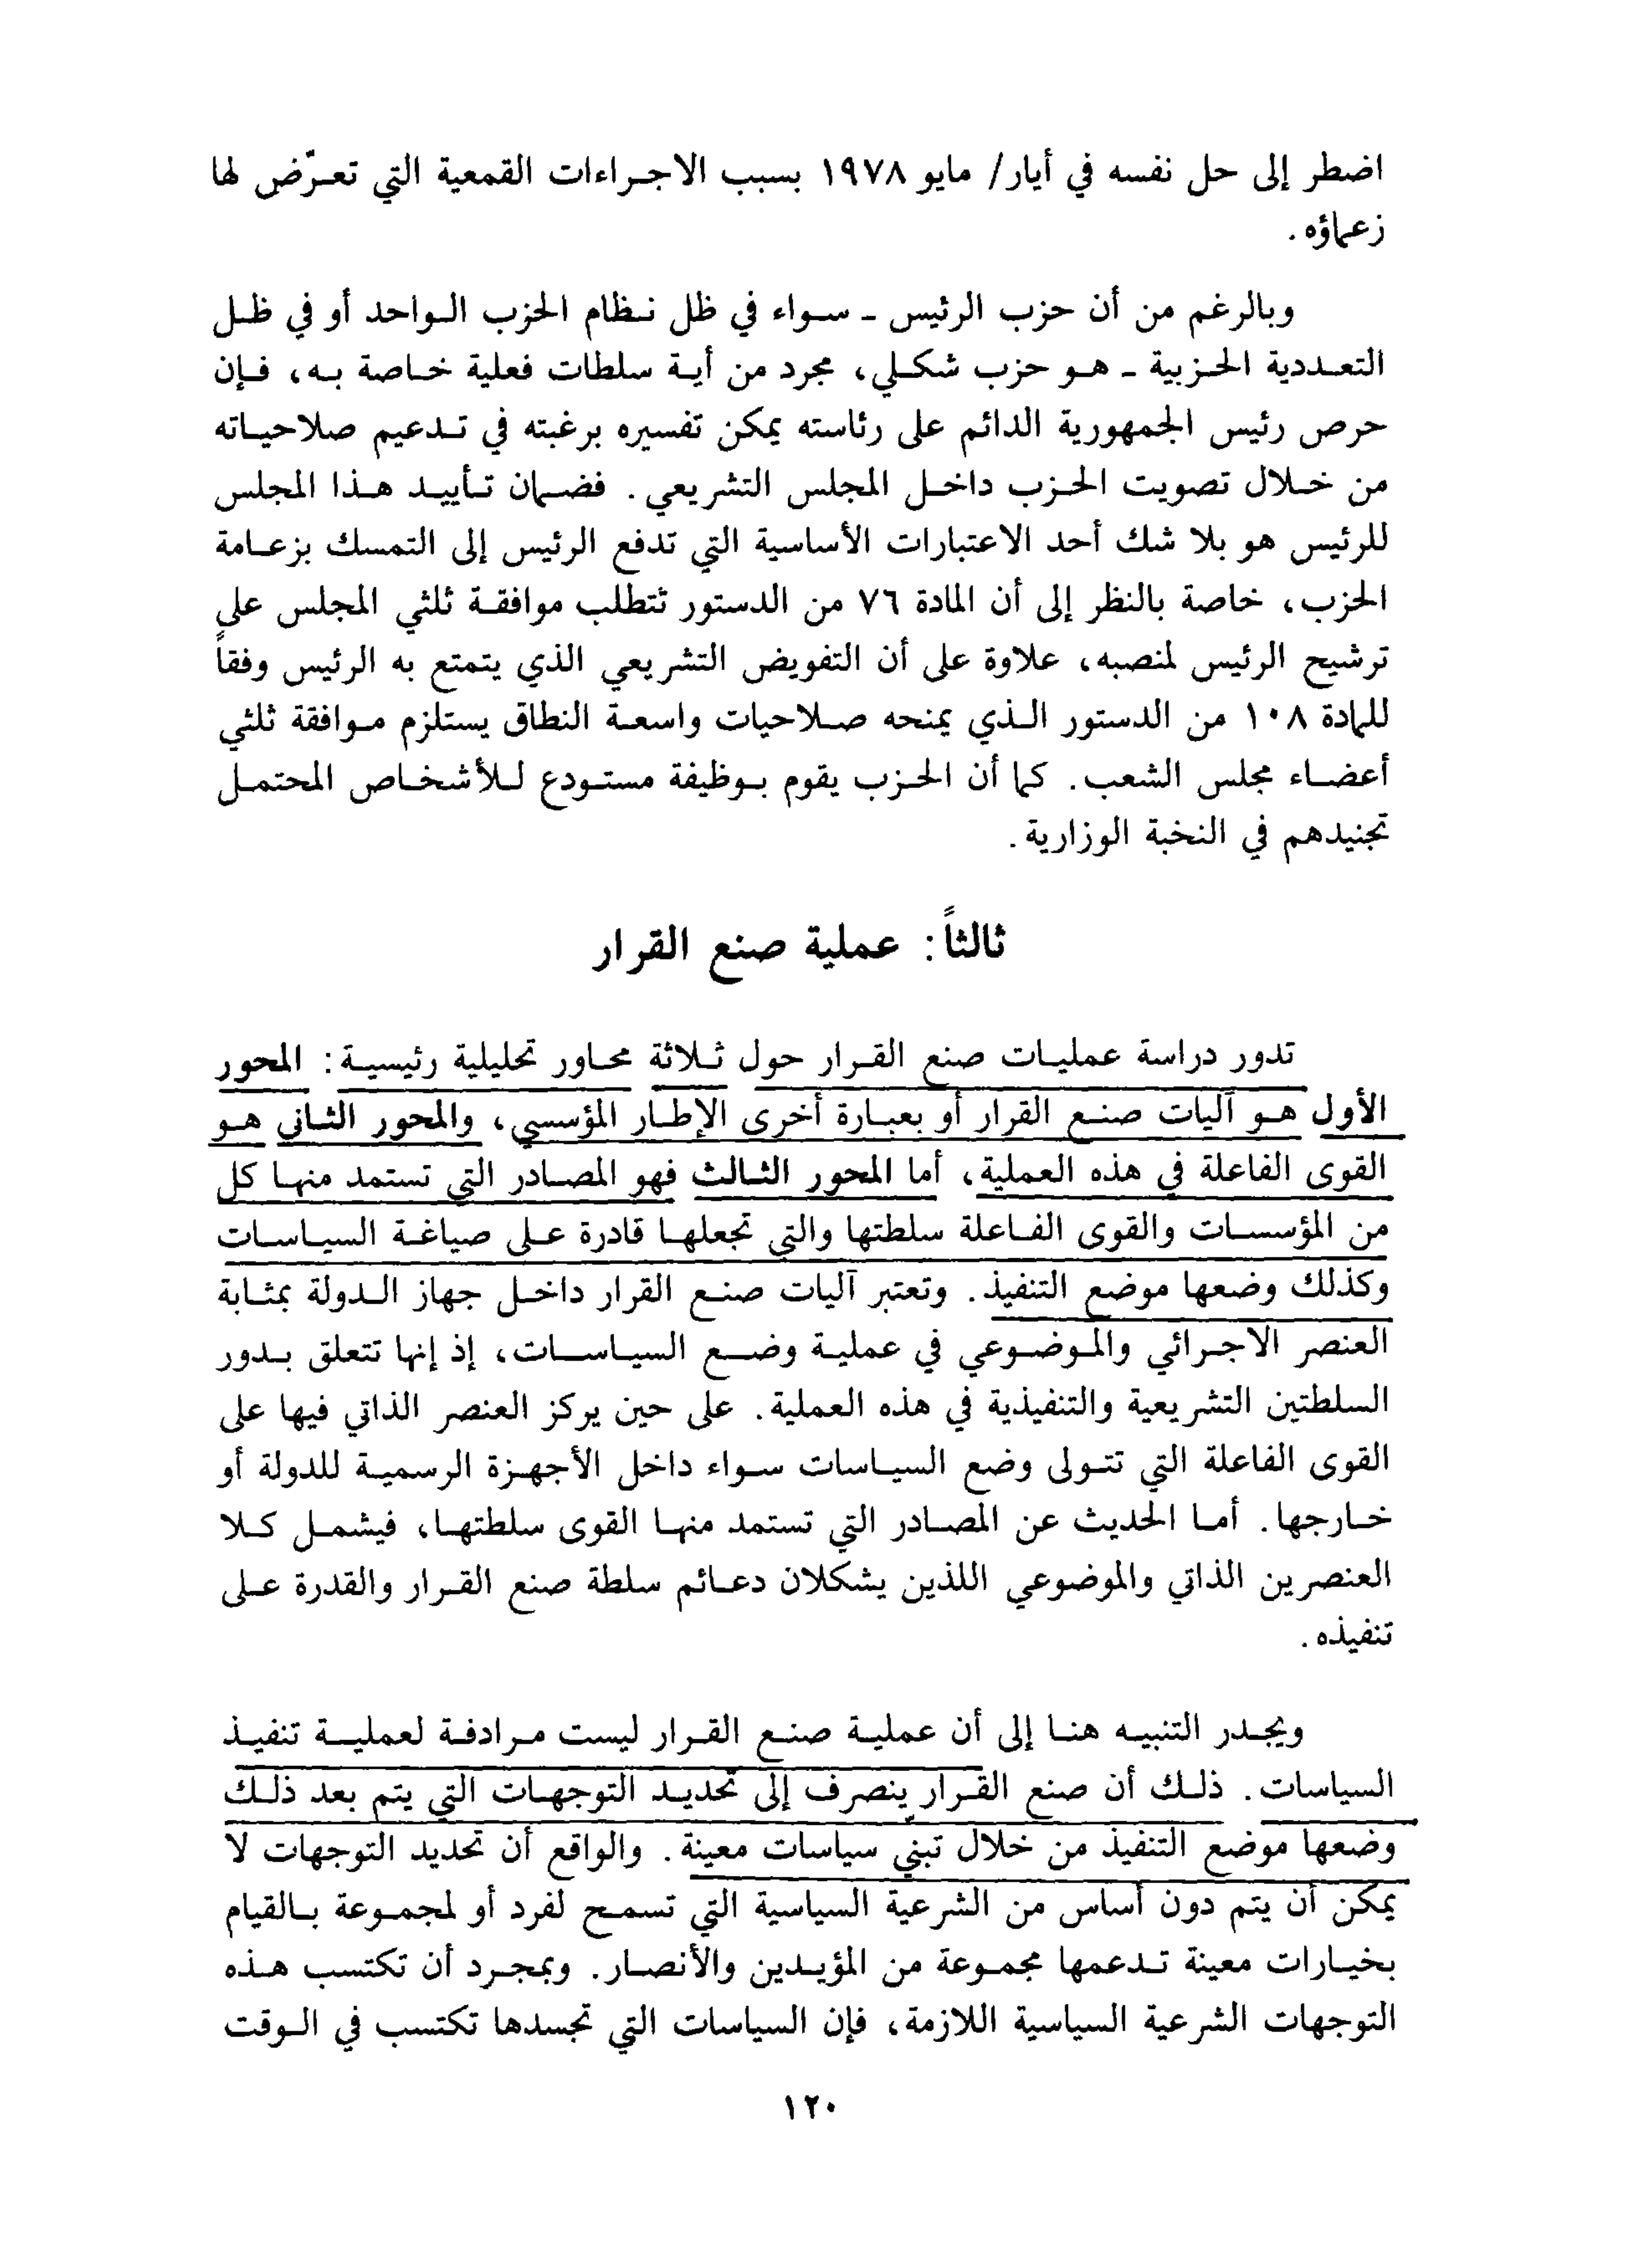 اضطر إلى حل نفسه في أيار/ مايو ١٩٧٨ بسبب الاجراءات القمعية التي تعرّض لها
زعماؤه.
وبالرغم من أن حزب الرئيس - سواء في ظل نظام الحزب الواحد أو في ظل
التعددية الحزبية - هو حزب شكلي، مجرد من أية سلطات فعلية خاصة به، فإن
حرص رئيس الجمهورية الدائم على رئاسته يمكن تفسيره برغبته في تدعيم صلاحياته
من خلال تصويت الحزب داخل المجلس التشريعي. فضمان تأييد هذا المجلس
للرئيس هو بلا شك أحد الاعتبارات الأساسية التي تدفع الرئيس إلى التمسك بزعامة
الحزب، خاصة بالنظر إلى أن المادة ٧٦ من الدستور تتطلب موافقة ثلثي المجلس على
ترشيح الرئيس لمنصبه، علاوة على أن التفويض التشريعي الذي يتمتع به الرئيس وفقاً
للمادة ١٠٨ من الدستور الذي يمنحه صلاحيات واسعة النطاق يستلزم موافقة ثلثي
أعضاء مجلس الشعب. كما أن الحزب يقوم بوظيفة مستودع للأشخاص المحتمل
تجنيدهم في النخبة الوزارية.
ثالثاً: عملية صنع القرار
تدور دراسة عمليات صنع القرار حول ثلاثة محاور تحليلية رئيسية: المحور
الأول هو آليات صنع القرار أو بعبارة أخرى الإطار المؤسسي، والمحور الثاني هو
القوى الفاعلة في هذه العملية، أما المحور الثالث فهو المصادر التي تستمد منها كل
من المؤسسات والقوى الفاعلة سلطتها والتي تجعلها قادرة على صياغة السياسات
وكذلك وضعها موضع التنفيذ. وتعتبر آليات صنع القرار داخل جهاز الدولة بمثابة
العنصر الاجرائي والموضوعي في عملية وضع السياسات، إذ إنها تتعلق بدور
السلطتين التشريعية والتنفيذية في هذه العملية. على حين يركز العنصر الذاتي فيها على
القوى الفاعلة التي تتولى وضع السياسات سواء داخل الأجهزة الرسمية للدولة أو
خارجها. أما الحديث عن المصادر التي تستمد منها القوى سلطتها، فيشمل كلا
العنصرين الذاتي والموضوعي اللذين يشكلان دعائم سلطة صنع القرار والقدرة على
تنفيذه.
ويجدر التنبيه هنا إلى أن عملية صنع القرار ليست مرادفة لعملية تنفيذ
السياسات. ذلك أن صنع القرار ينصرف إلى تحديد التوجهات التي يتم بعد ذلك
وضعها موضع التنفيذ من خلال تبني سياسات معينة. والواقع أن تحديد التوجهات لا
يمكن أن يتم دون أساس من الشرعية السياسية التي تسمح لفرد أو لمجموعة بالقيام
بخيارات معينة تدعمها مجموعة من المؤيدين والأنصار. وبمجرد أن تكتسب هذه
التوجهات الشرعية السياسية اللازمة، فإن السياسات التي تجسدها تكتسب في الوقت
١٢٠